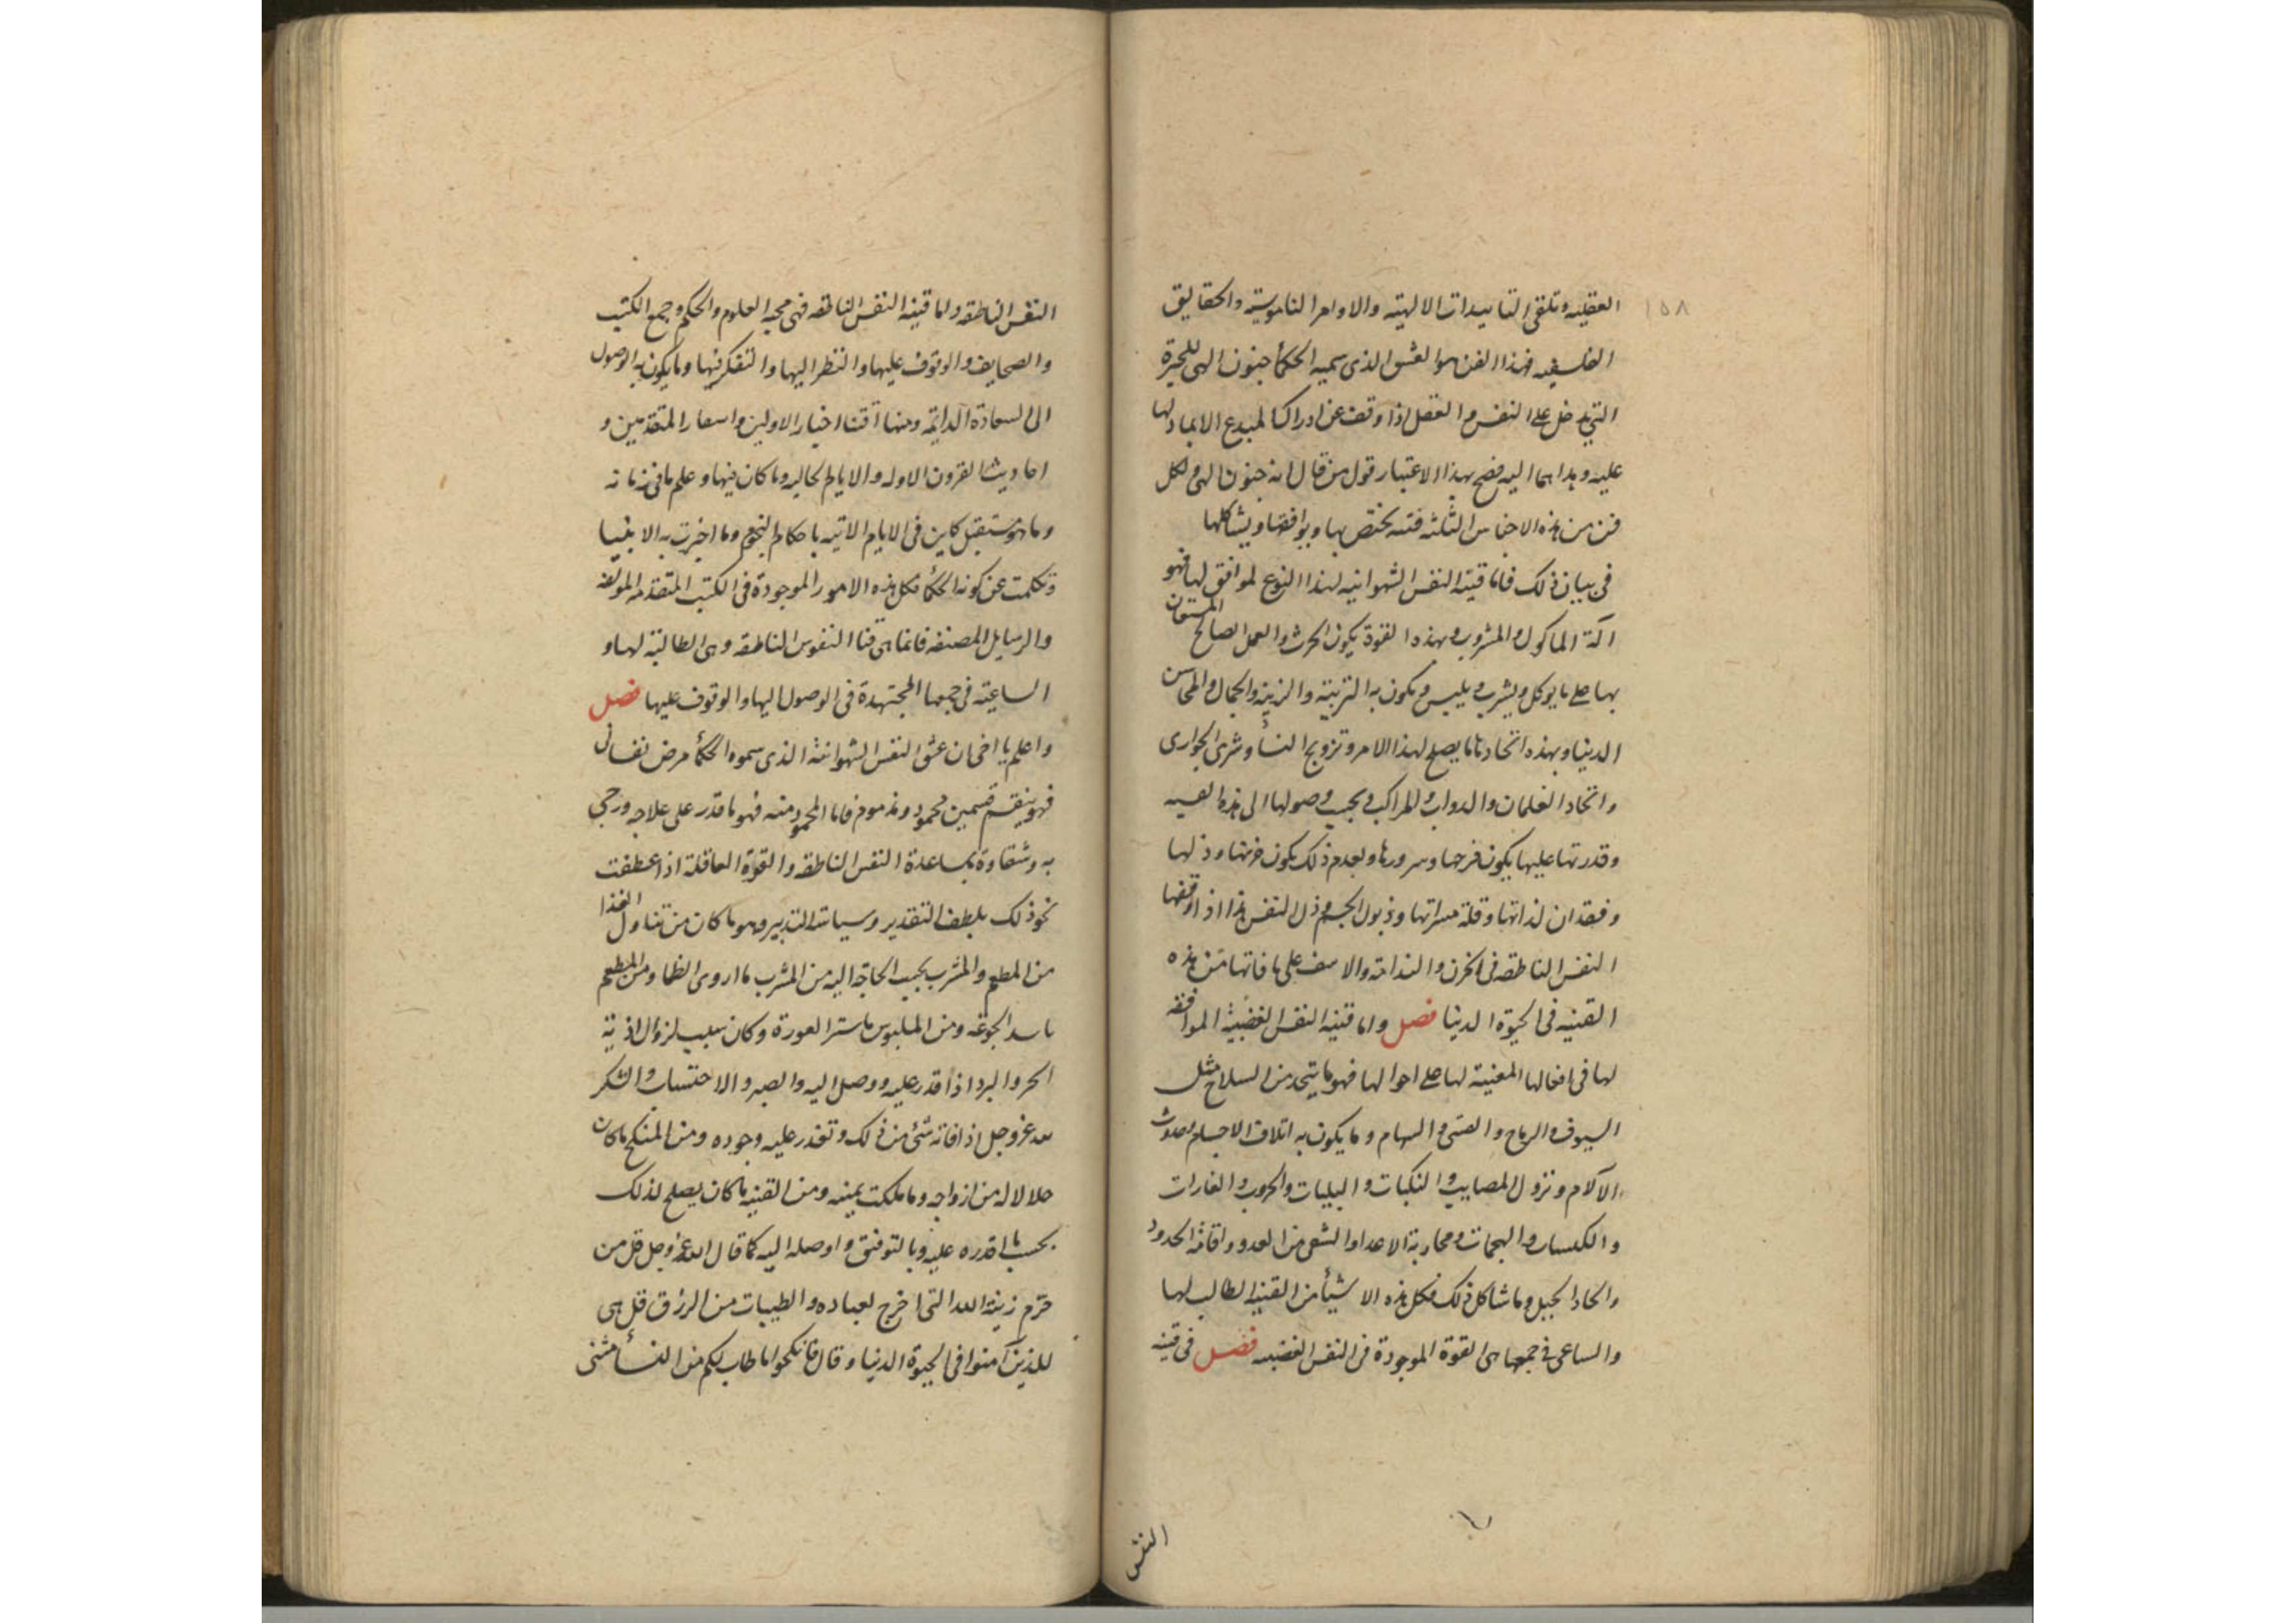 ١٥٨
العقليه وتلقى التاييدات الالهيه والاوامر الناموسيه والحقايق
الفلسفيه فهذا الفن هو العشق الذى سميه الحكمأ جنون الهى للحيرة
التى تدخل على النفس والعقل اذا وقف عن ادراك المبدع الا بما دلها
عليه وهداهما اليه فصح بهذا الاعتبار قول من قال انه جنون الهى ولكل
فن من هذه الاجناس الثلثه قنيه تختص بها ويوافقها ويشاكلها
فى بيان ذلك فاما قنية النفس الشهوانيه لهذا النوع الموافق لها فهو
آلة الماكول والمشروب وبهذه القوة يكون الحرث والعمل الصالح المستعان
بها على ما يوكل ويشرب ويلبس ويكون به التربية والزينه والجمال والمحاسن
الدنيا وبهذه اتحاد ما يصلح لهذا الامر وتزويج النسأ وشرى الجوارى
واتحاد الغلمان والدواب والمراكب وبحسب وصولها الى هذه القنيه
وقدرتها عليها يكون فرحها وسرورها وبعدم ذلك يكون حزنها وذلها
وفقدان لذاتها وقلة مسراتها وذبول الجسم وذل النفس هذا اذا اوقفها
النفس الناطقه فى الحزن والندامة والاسف على ما فاتها من هذه
القنيه فى الحيوة الدنيا فصل واما قنية النفس الغضبية الموافقه
لها فى افعالها المعنية لها على احوالها فهو ما يتحد من السلاح مثل
السيوف والرماح والقسى والسهام وما يكون به اتلاف الاجسام وحدوث
الآلام ونزول المصايب والنكبات والبليات والحروب والغارات
والكبسات والهجمات ومحاربة الاعدا والتشفى من العدو واقامة الحدود
واتحاد الحيل وما شاكل ذلك فكل هذه الاشيأ من القنيه الطالب لها
والساعى فى جمعها هى القوة الموجودة فى النفس الغضبيه فصل فى قنيه
النفس
النفس الناطقه واما قنية النفس الناطقه فهى محبه العلوم والحكم وجمع الكتب
والصحايف والوقوف عليها والنظر اليها والتفكر فيها وما يكون به الوصول
الى السعادة الدايمه ومنها اقتنا اخبار الاولين واسعار المتقدمين و
احاديث القرون الاوله والايام الخاليه وما كان فيها وعلم ما فى زمانه
وما هو مستقبل كاين فى الايام الاتيه باحكام النجوم وما اخبرت به الانبيا
وتكلمت عن كونه الحكمأ فكل هذه الامور الموجودة فى الكتب المتقدمه المولفه
والرسايل المصنفه فانما هى قنا النفوس الناطقه وهى الطالبة لها و
الساعية فى جمعها المجتهدة فى الوصول اليها والوقوف عليها فصل
واعلم يا اخى ان عشق النفس الشهوانية الذى سموه الحكمأ مرض نفسانى
فهو ينقسم قسمين محمود ومذموم فاما المحمود منه فهو ما قدر على علاجه ورجى
به وشقاوة بمساعدة النفس الناطقه والقوة العاقلة اذا عطفت
نحو ذلك بلطف التقدير وسياسة التدبير وهو ما كان من تناول الغذا
من المطعم والمشرب بحسب الحاجة اليه من المشرب ما اروى الظما ومن المطعم
ما سد الجوعه ومن الملبوس ما ستر العورة وكان سبب لزوال اذية
الحر والبرد اذا قدر عليه ووصل اليه والصبر والاحتساب والشكر
لله عز وجل اذا فاته شئ من ذلك وتعذر عليه وجوده ومن المنكح ما كان
حلالا له من ازواجه وما ملكت يمينه ومن القنيه ما كان يصلح لذلك
بحسب ما اقدره عليه وبالتوفيق واوصله اليه كما قال الله عز وجل قل من
حرم زينة الله التى اخرج لعباده والطيبات من الرزق قل هى
للذين آمنوا فى الحيوة الدنيا وقال فانكحوا ما طاب لكم من النسأ مثنى